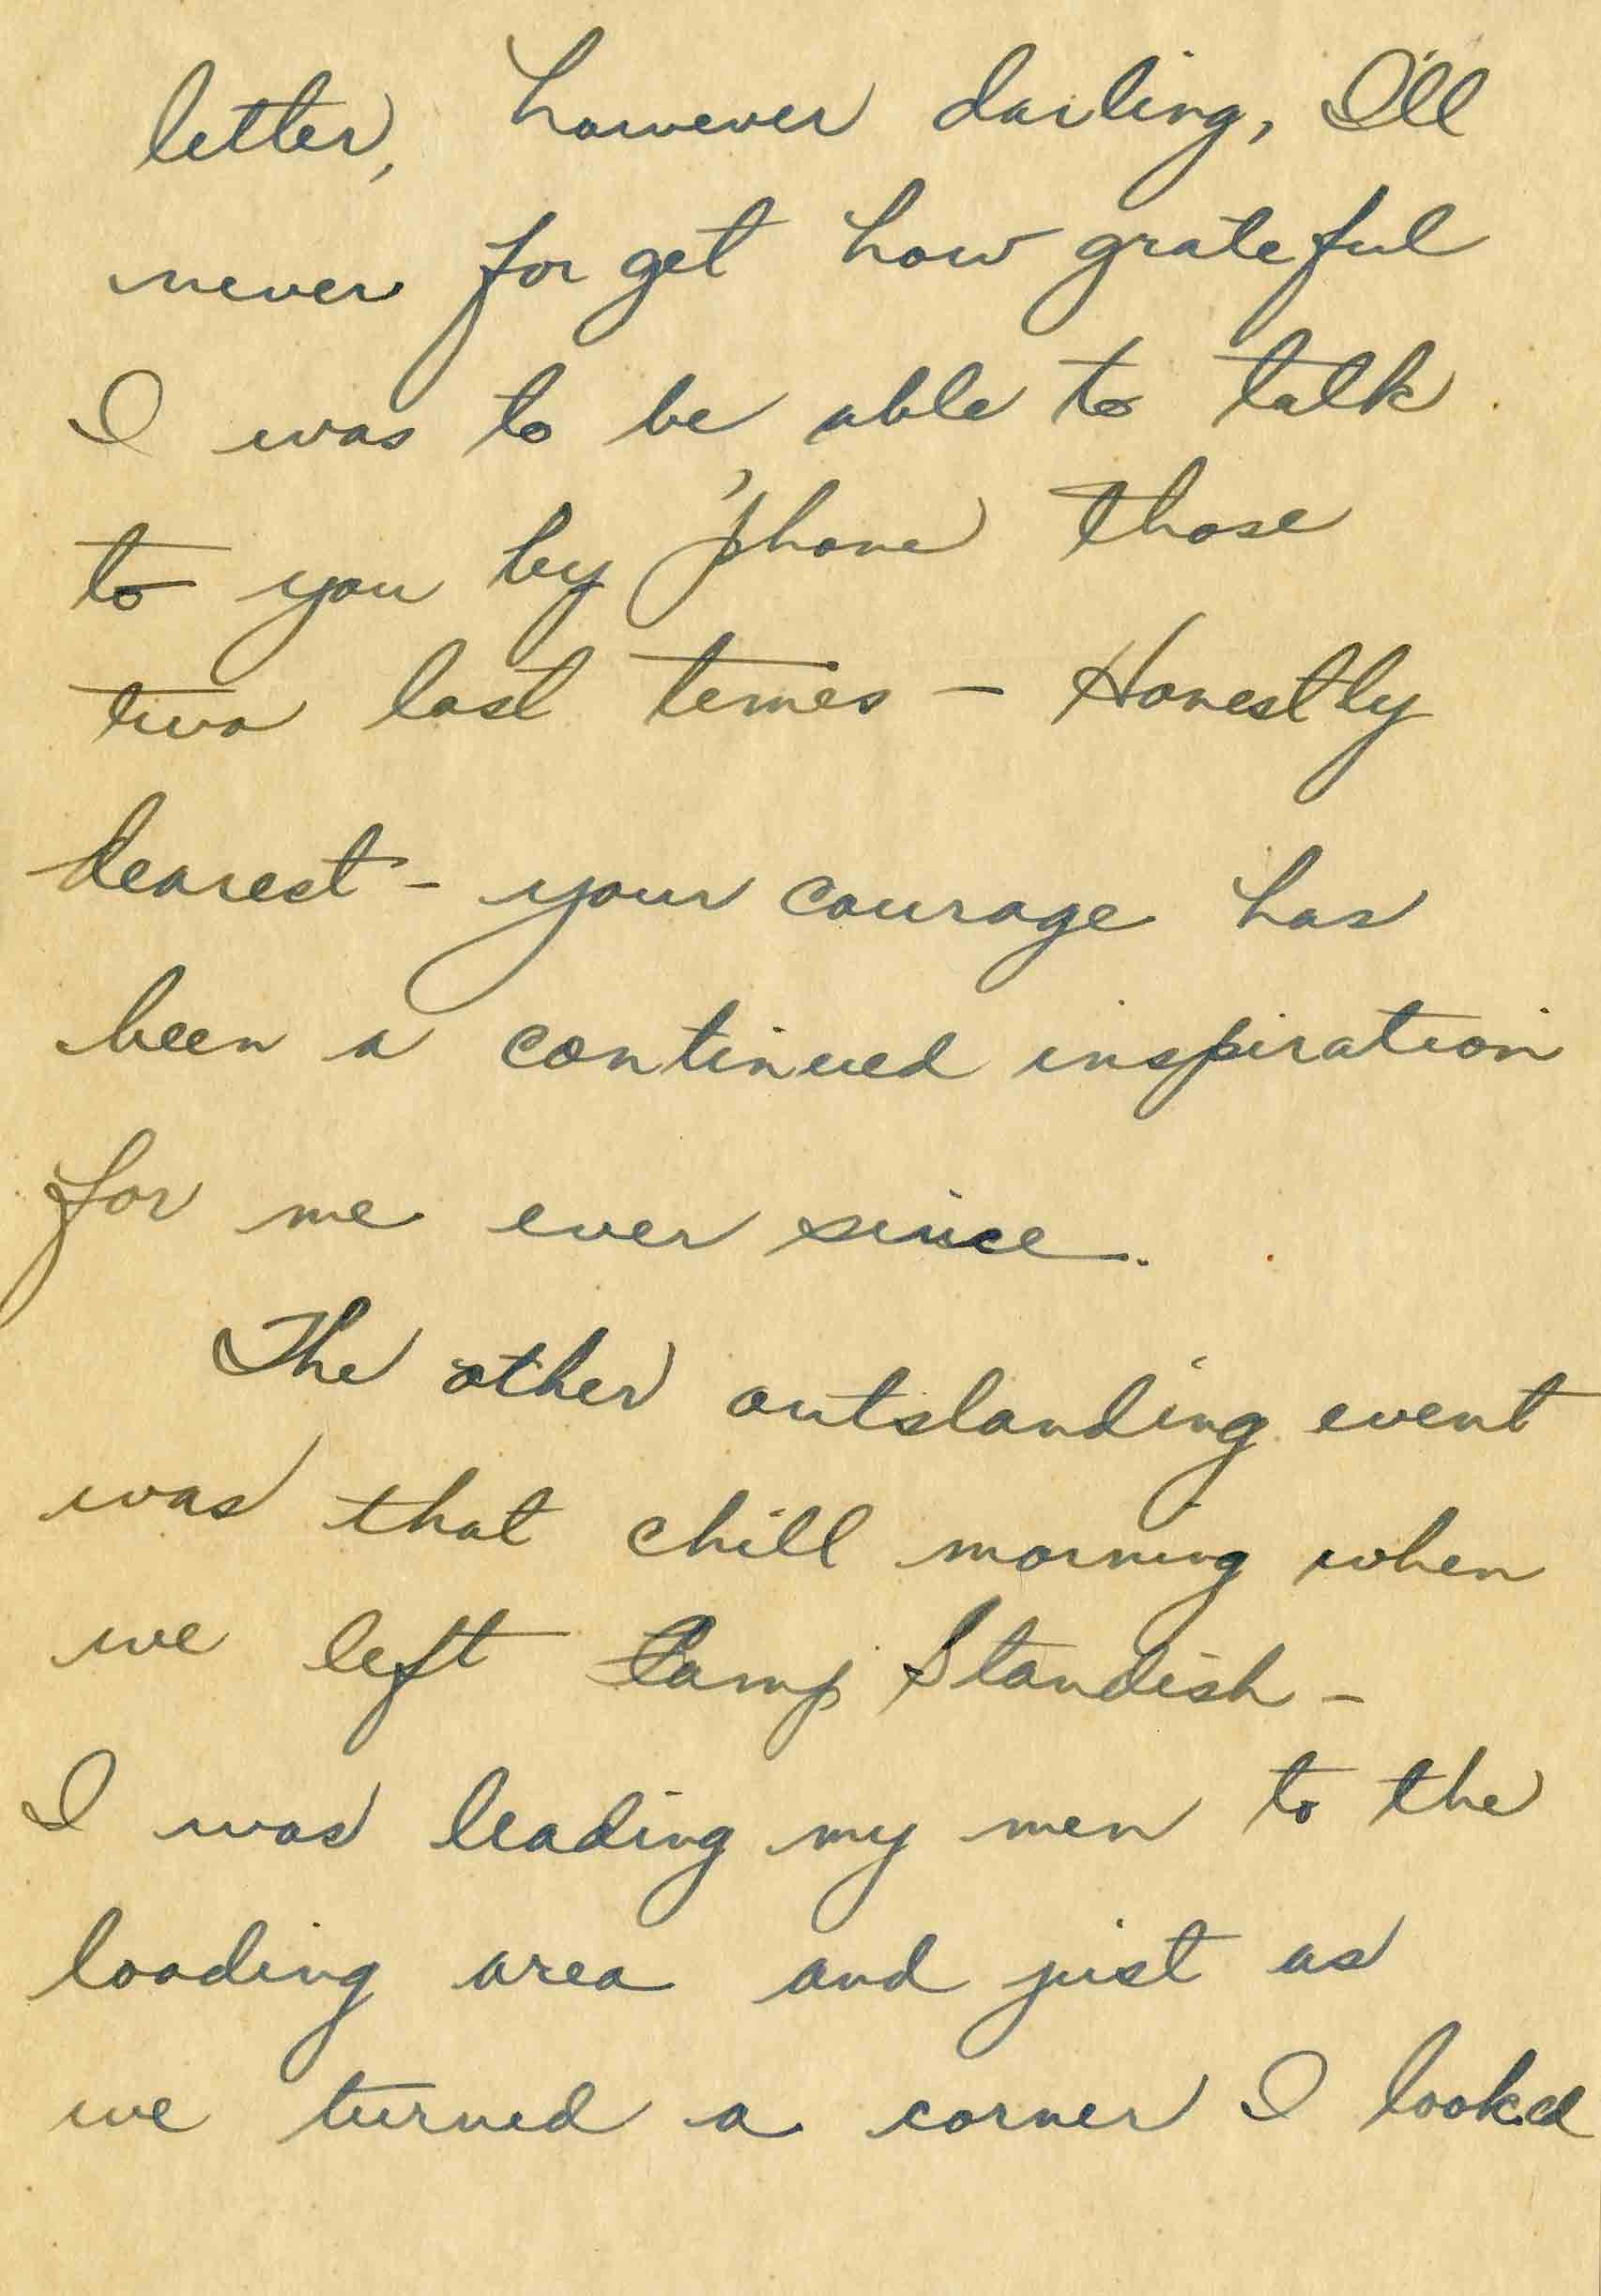 letter, however darling, I'll
never forget how grateful
I was to be able to talk
to you by 'phone those
two last times - Honestly
dearest - your courage has
been a continued inspiration
for me ever since.
The other outstanding event
was that chill morning when
we left Camp Standish -
I was leading my men to the
loading area and just as
we turned a corner I looked